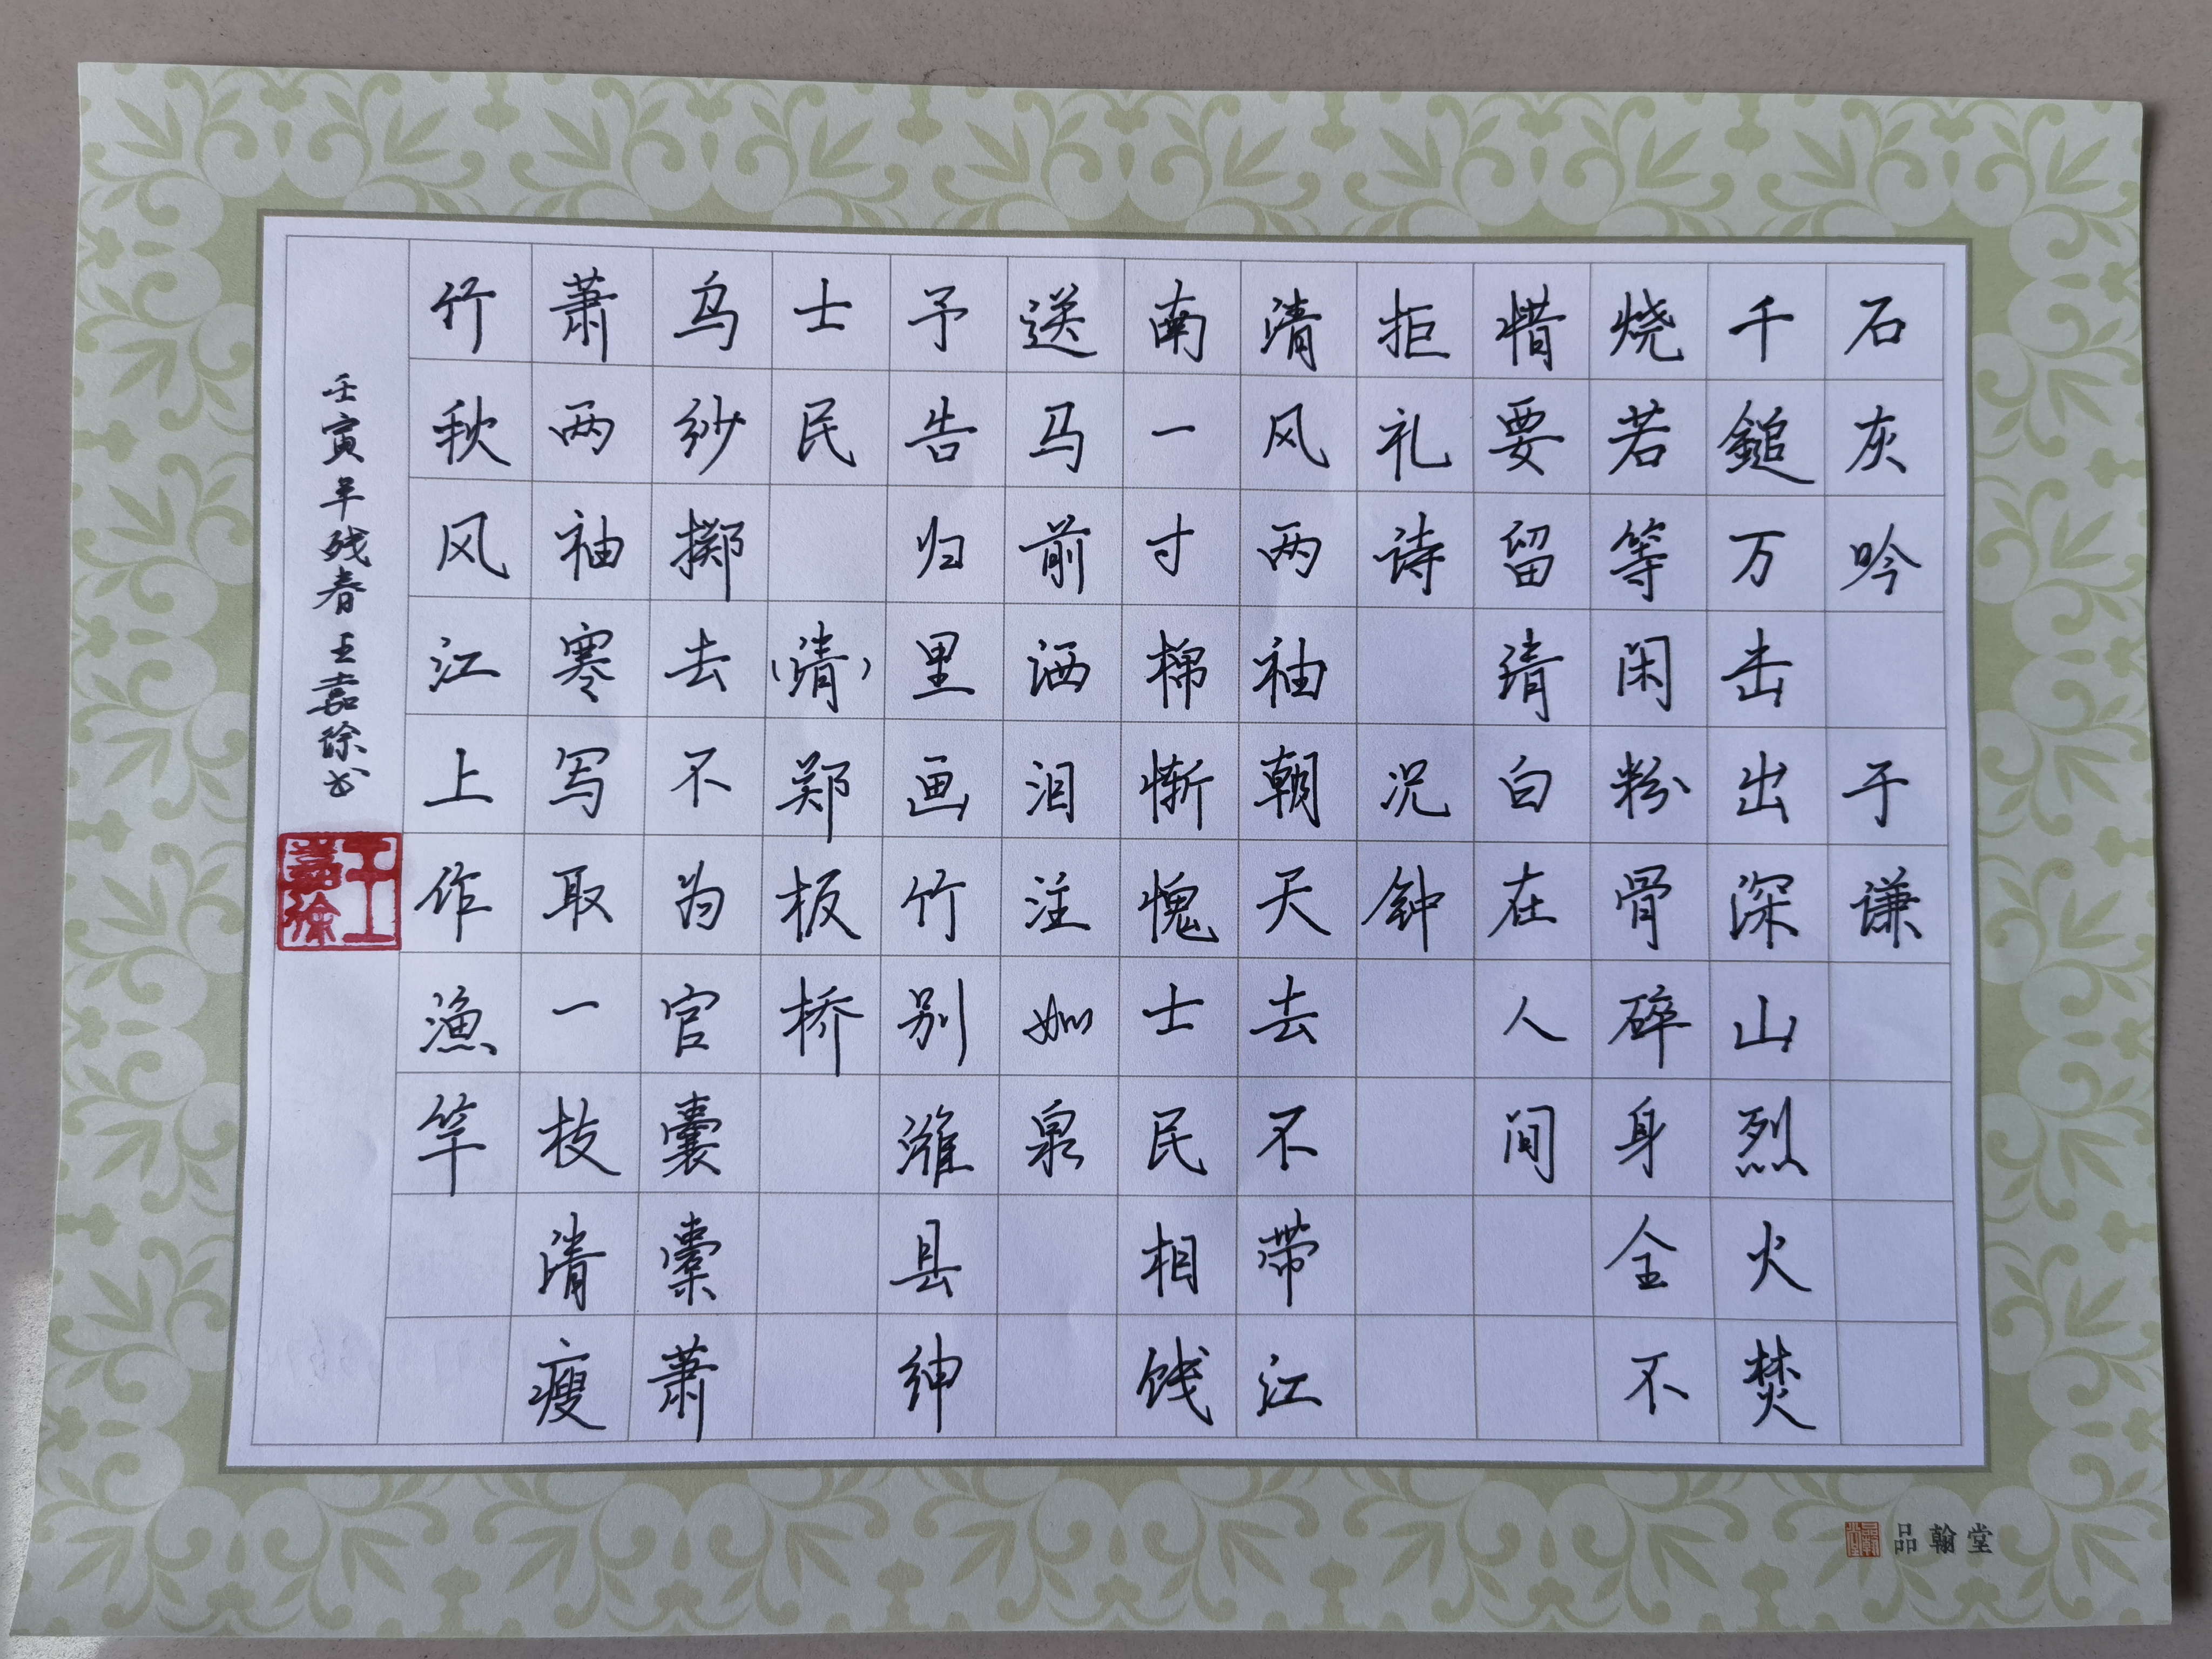 石灰吟 于谦
千鎚万击出深山烈火焚
烧若等闲粉骨碎身全不
惜要留清白在人间
拒礼诗 况钟
清风两袖朝天去不带江
南一寸棉惭愧士民相饯
送马前洒泪注如泉
予告归里画竹别潍县绅
士民 (清)郑板桥
乌纱掷去不为官囊橐萧
萧两袖寒写取一枝清瘦
竹秋风江上作渔竿
壬寅年残春王嘉徐书
王嘉徐
品翰堂
品翰堂